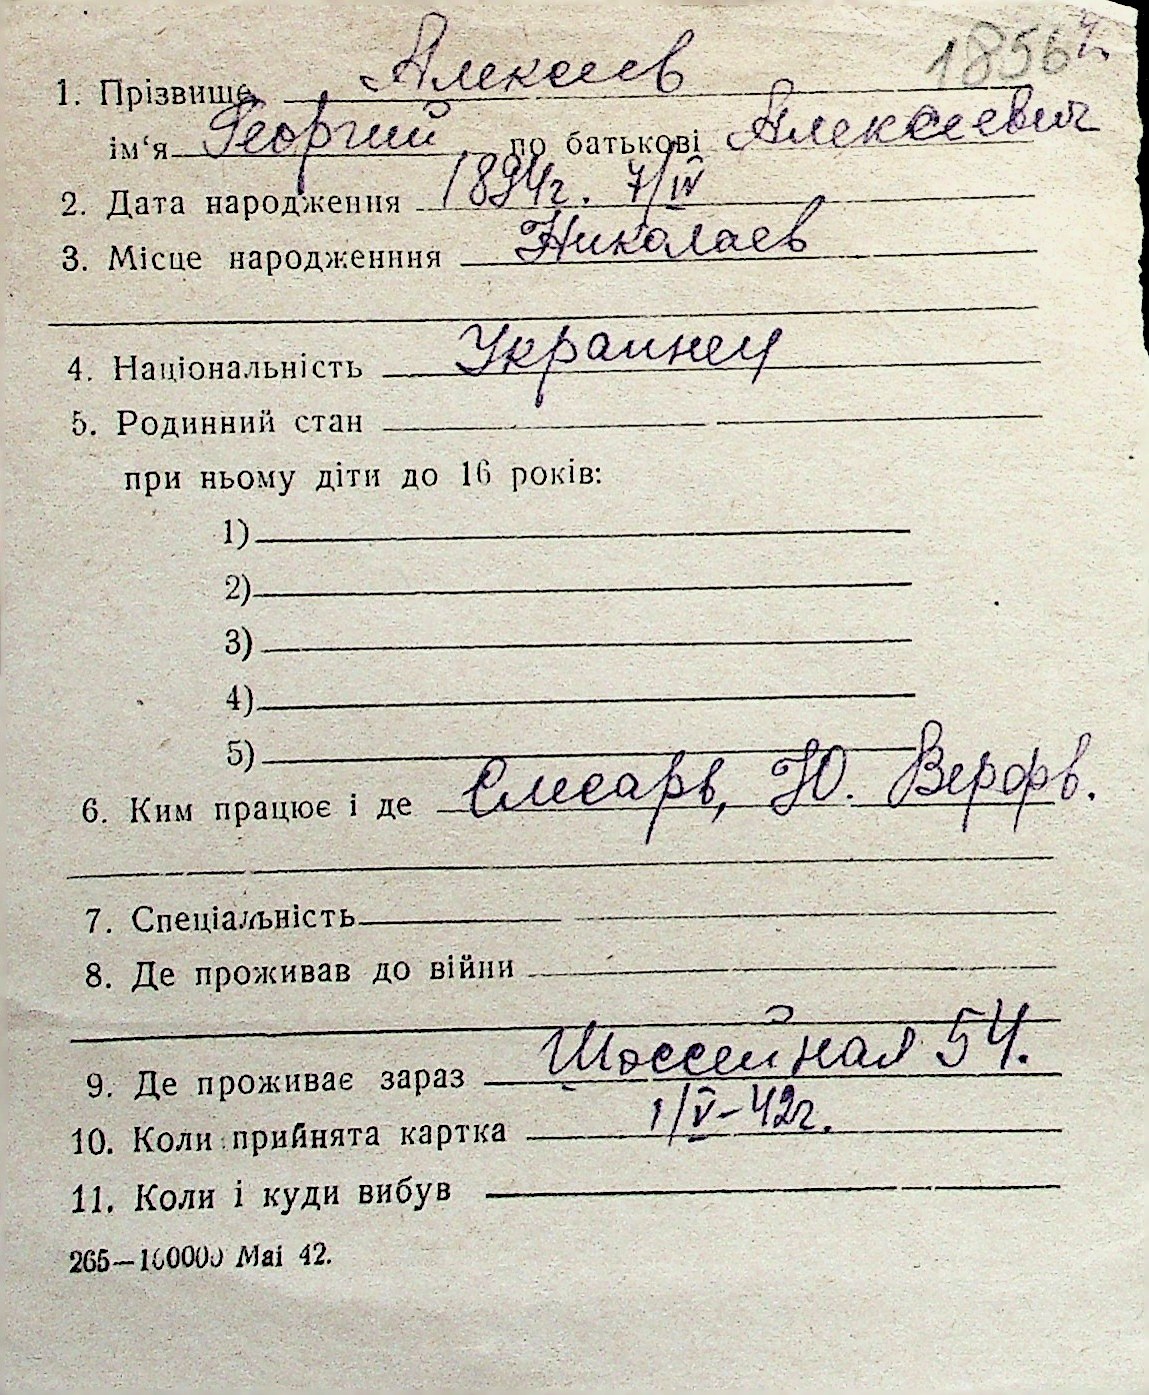 1856
1. Прізвище Алексеев
ім‘я Георгий по батькові Алексеевич
2. Дата народження 1894г. 7/IV
3. Місце народженння Николаев
4. Національність Украинец
5. Родинний стан
при ньому діти до 16 років:
1)
2)
3)
4)
5)
6. Ким працює і де Слесарь, Ю. Верфь.
7. Спеціальність
8. Де проживав до війни
9. Де проживає зараз Шоссейная 54.
10. Коли прийнята картка 1/V-42г.
11. Коли і куди вибув
265—100000 Mai 42.